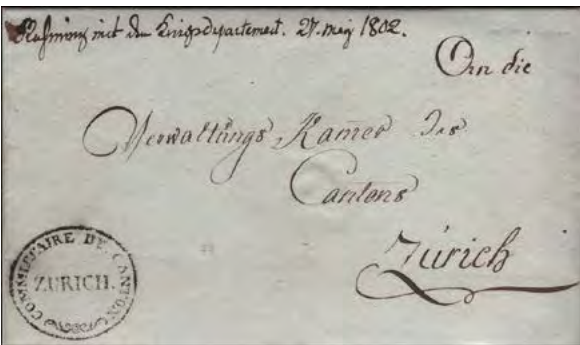 Rechnung mit dem Kriegsdepartement. 27. May 1802.
An die
Verwaltungs Kamer des
Cantons
Zürich
COMMISSAIRE DE CANTON
ZURICH.